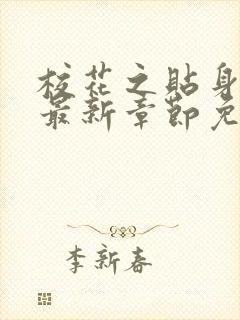 校花之贴身
最新章节免
李新春